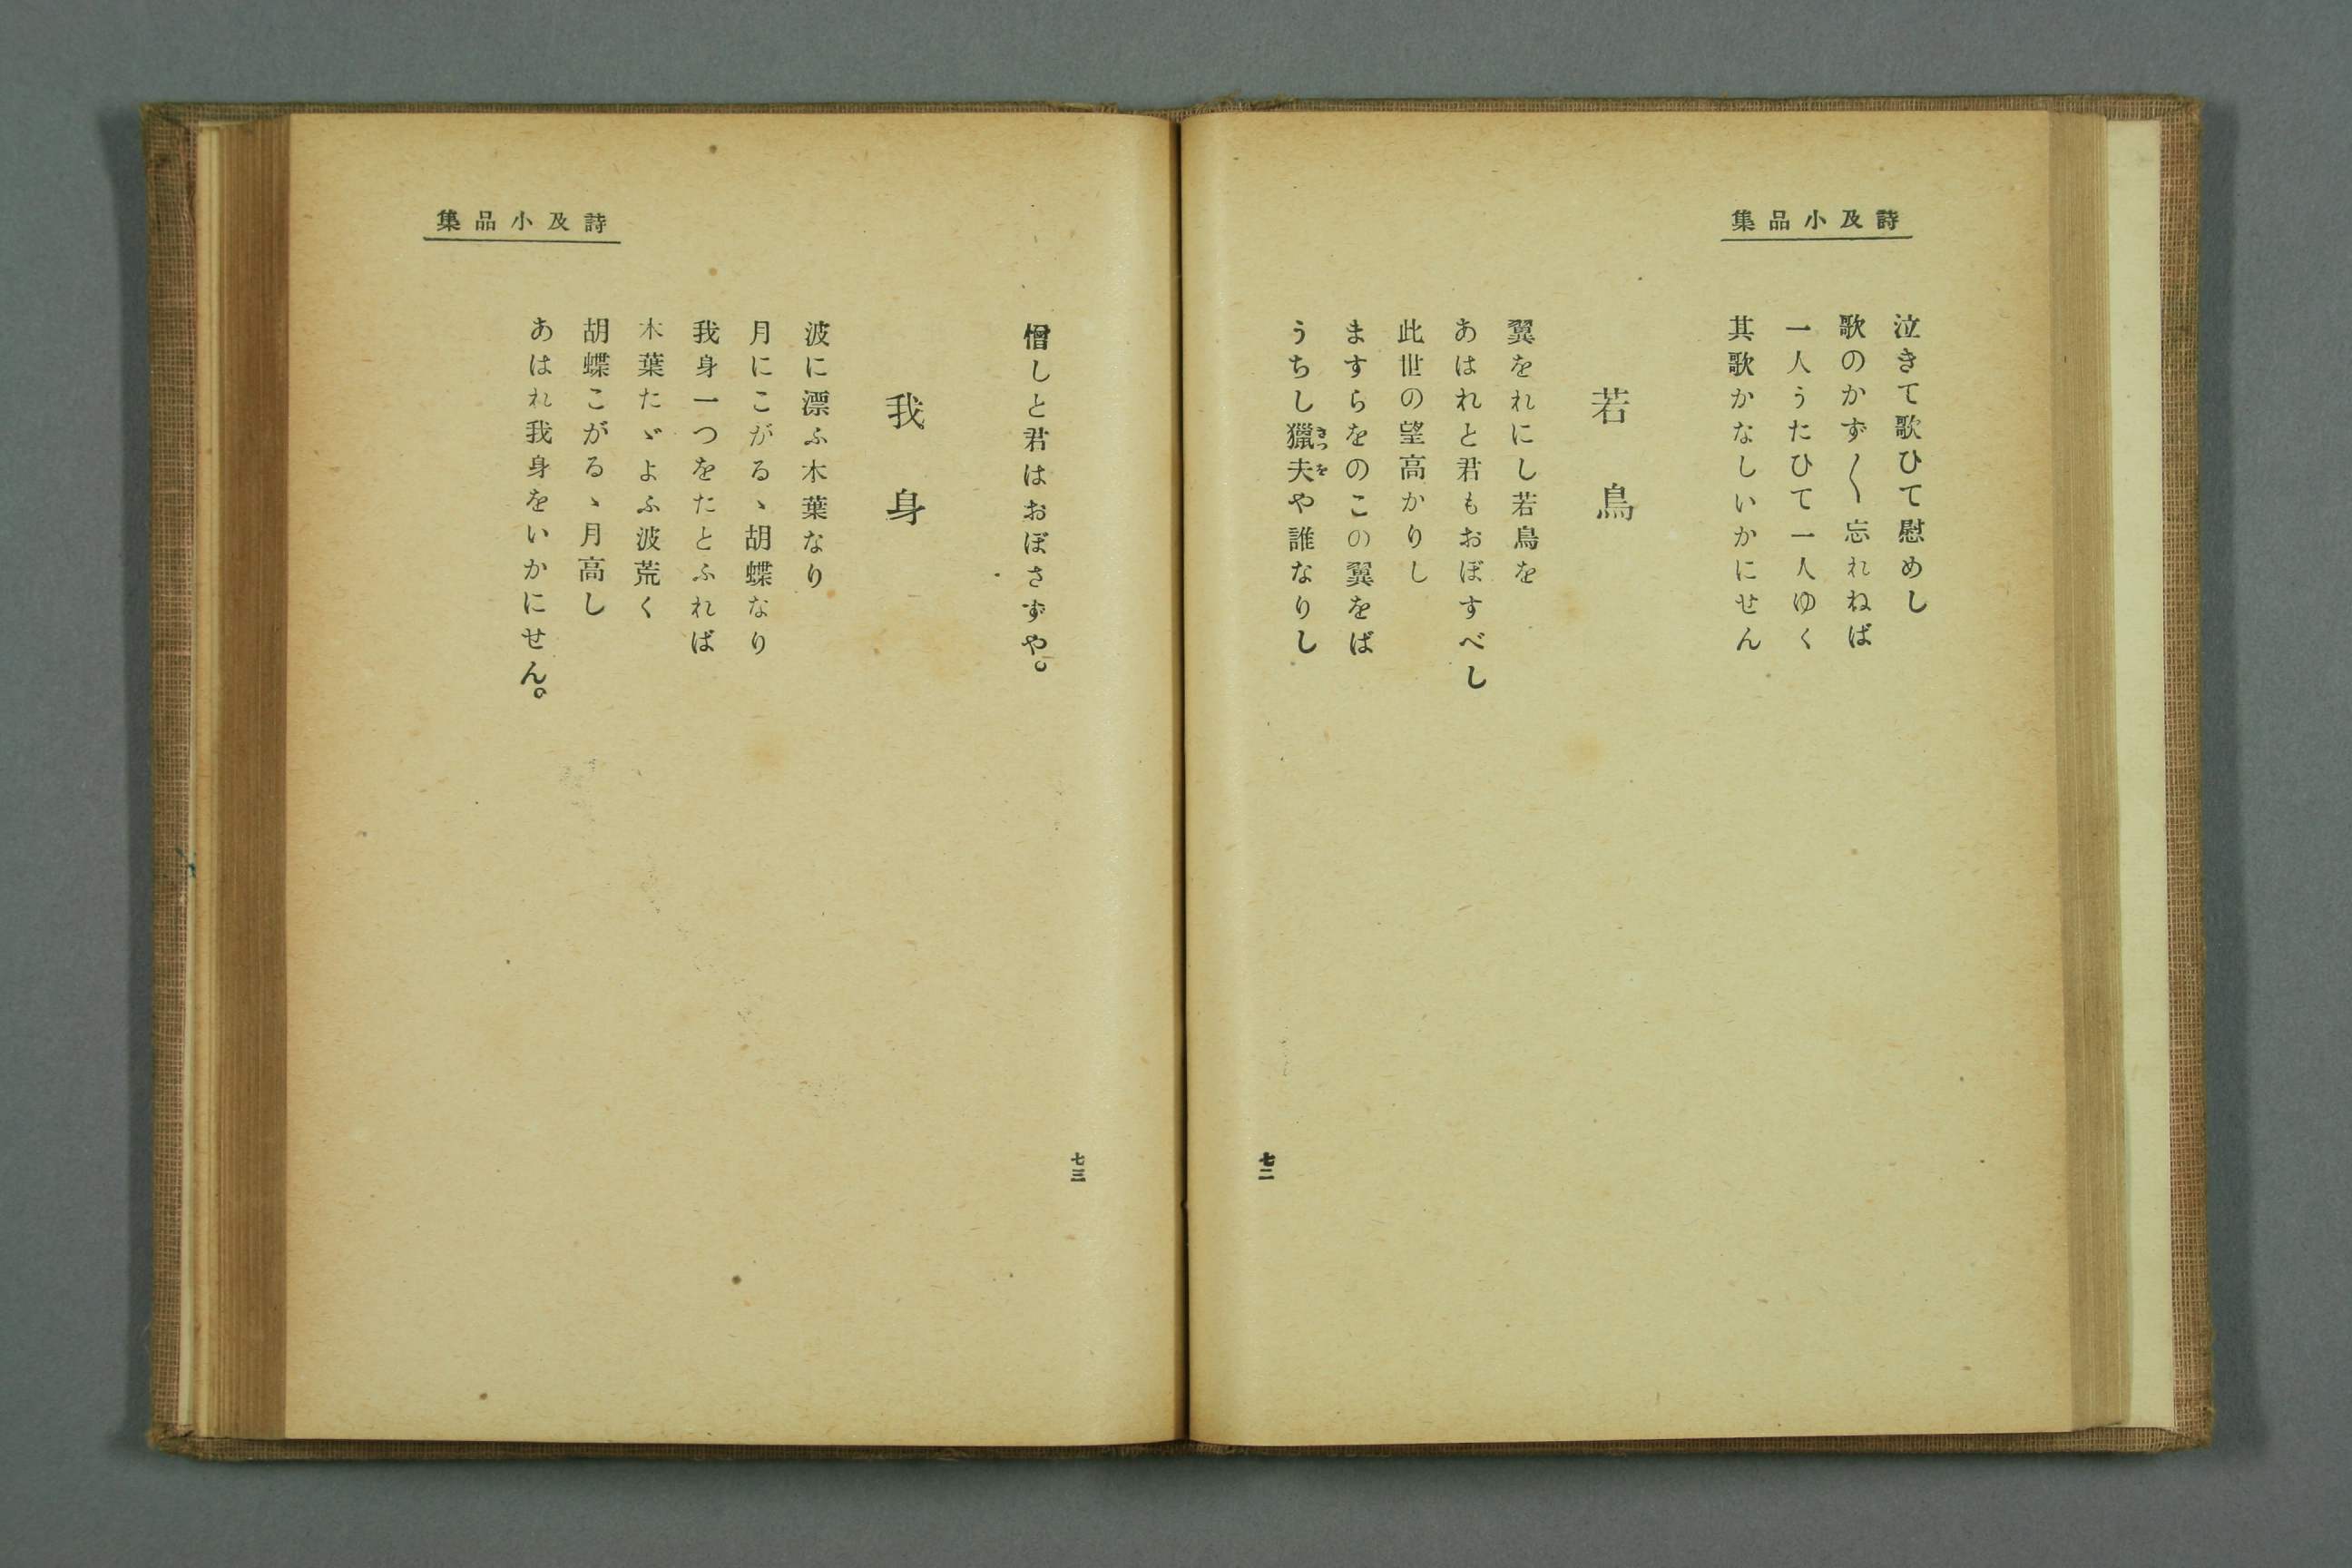 詩及小品集
泣きて歌ひて慰めし
歌のかず〱忘れねば
一人うたひて一人ゆく
其歌かなしいかにせん
若鳥
翼をれにし若鳥を
あはれと君もおぼすべし
此世の望高かりし
ますらをのこの翼をば
うちし獵夫や誰なりし
さつを
七二
詩及小品集
憎しと君はおぼさずや。
我身
波に漂ふ木葉なり
月にこがるゝ胡蝶なり
我身一つをたとふれば
木葉たゞよふ波荒く
胡蝶こがるゝ月高し
あはれ我身をいかにせん。
七三